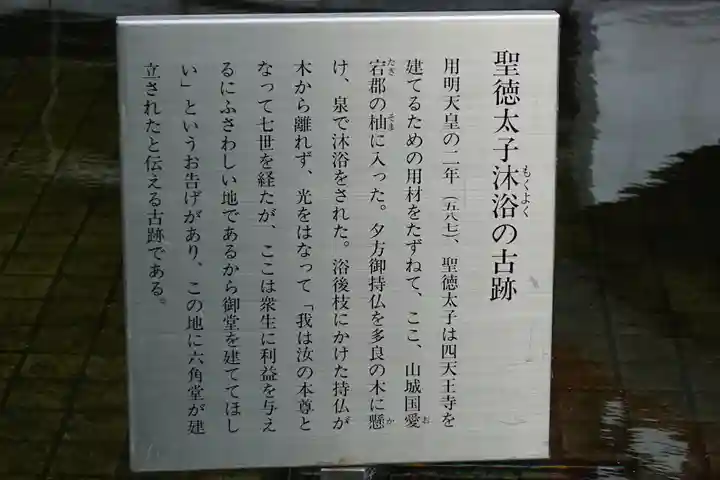 聖徳太子沐浴の古跡
用明天皇の二年(五八七)、聖徳太子は四天王寺を
建てるための用材をたずねて、ここ、山城国愛
宕郡の杣に入った。夕方御持仏を多良の木に懸
け、泉で沐浴をされた。浴後枝にかけた持仏が
木から離れず、光をはなって「我は汝の本尊と
なって七世を経たが、ここは衆生に利益を与え
るにふさわしい地であるから御堂を建ててほし
い」というお告げがあり、この地に六角堂が建
立されたと伝える古跡である。